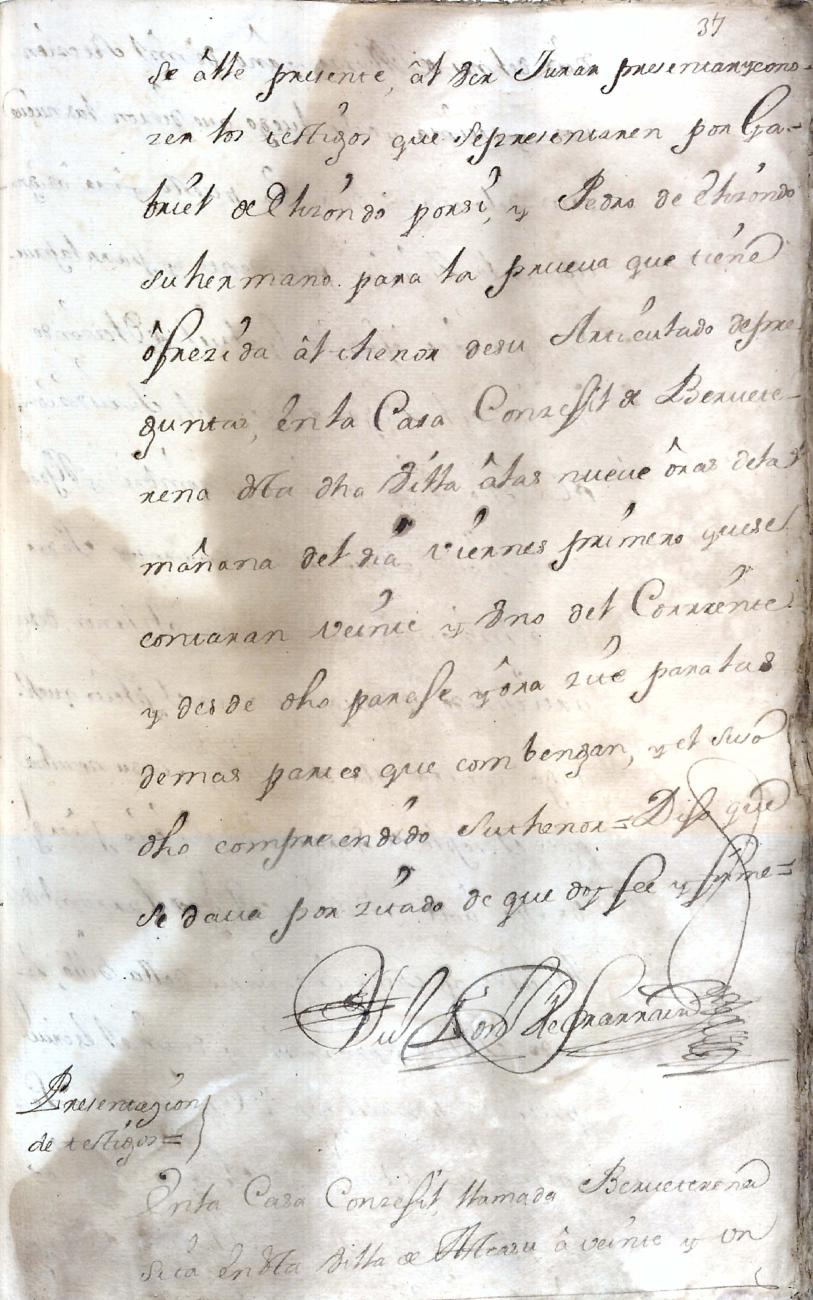 37
se âlle presente, ât ber Jurar presentar y cono-
zer los testigos que sepresentaren por Ga-
briel de Elizondo porsi, y Pedro de Elizondo
suhermano para la prueva que tiene
ôfrezida âl thenor desu Articulado depre-
guntas, en la Casa Conzejil de Beruete-
rena desta dha Villa âlas nueve ôras dela
mañana del dia viernes primero quese
contaran veinte y Uno del Corriente
y desde dho paraje y ôra zite paralas
demas partes que combengan, y el suso
dho compreendido suthenor = Dijo que
se dava por zitado de que doy fee y firme =
Presentazion
de testigos =
En la Casa Conzejil, llamada Berueterena
sita en esta Villa de â veinte y un